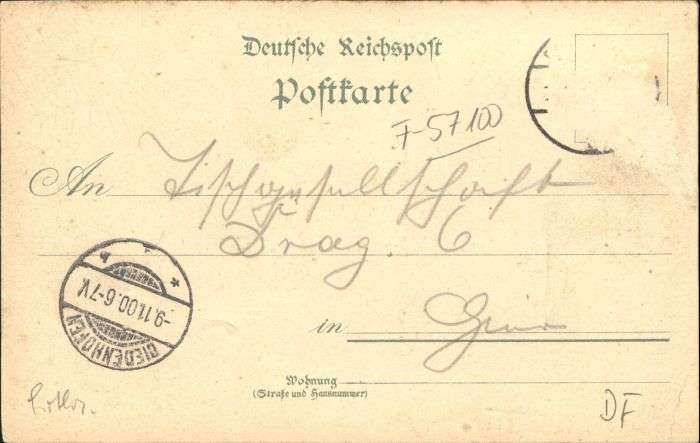 Deutsche Reichspost
Postkarte
F-57100
An Tischgesellschaft
Drag. 6
in
Wohnung
(Straße und Hausnummer)
DIEDENHOFEN
-9.11.00.6-7V.
DF